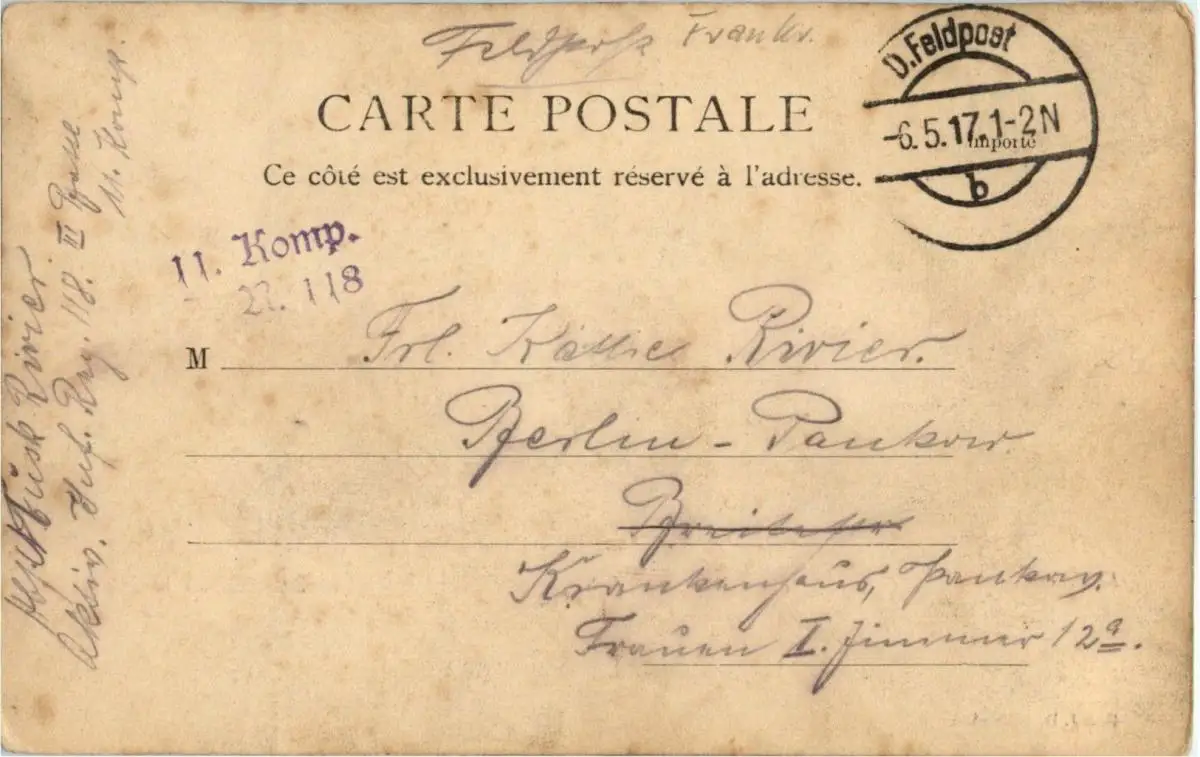 Feldpost Frankr.
CARTE POSTALE
Ce côté est exclusivement réservé à l'adresse.
D. Feldpost
-6.5.17.1-2N
importé
b
11. Komp.
R. 118
M Frl. Käthe Rivier.
Berlin - Pankow.
Krankenhaus, Pankow.
Frauen I. Zimmer 12a.
Rivier
Aktiv. Inf. Reg. 118. III
11. Komp.